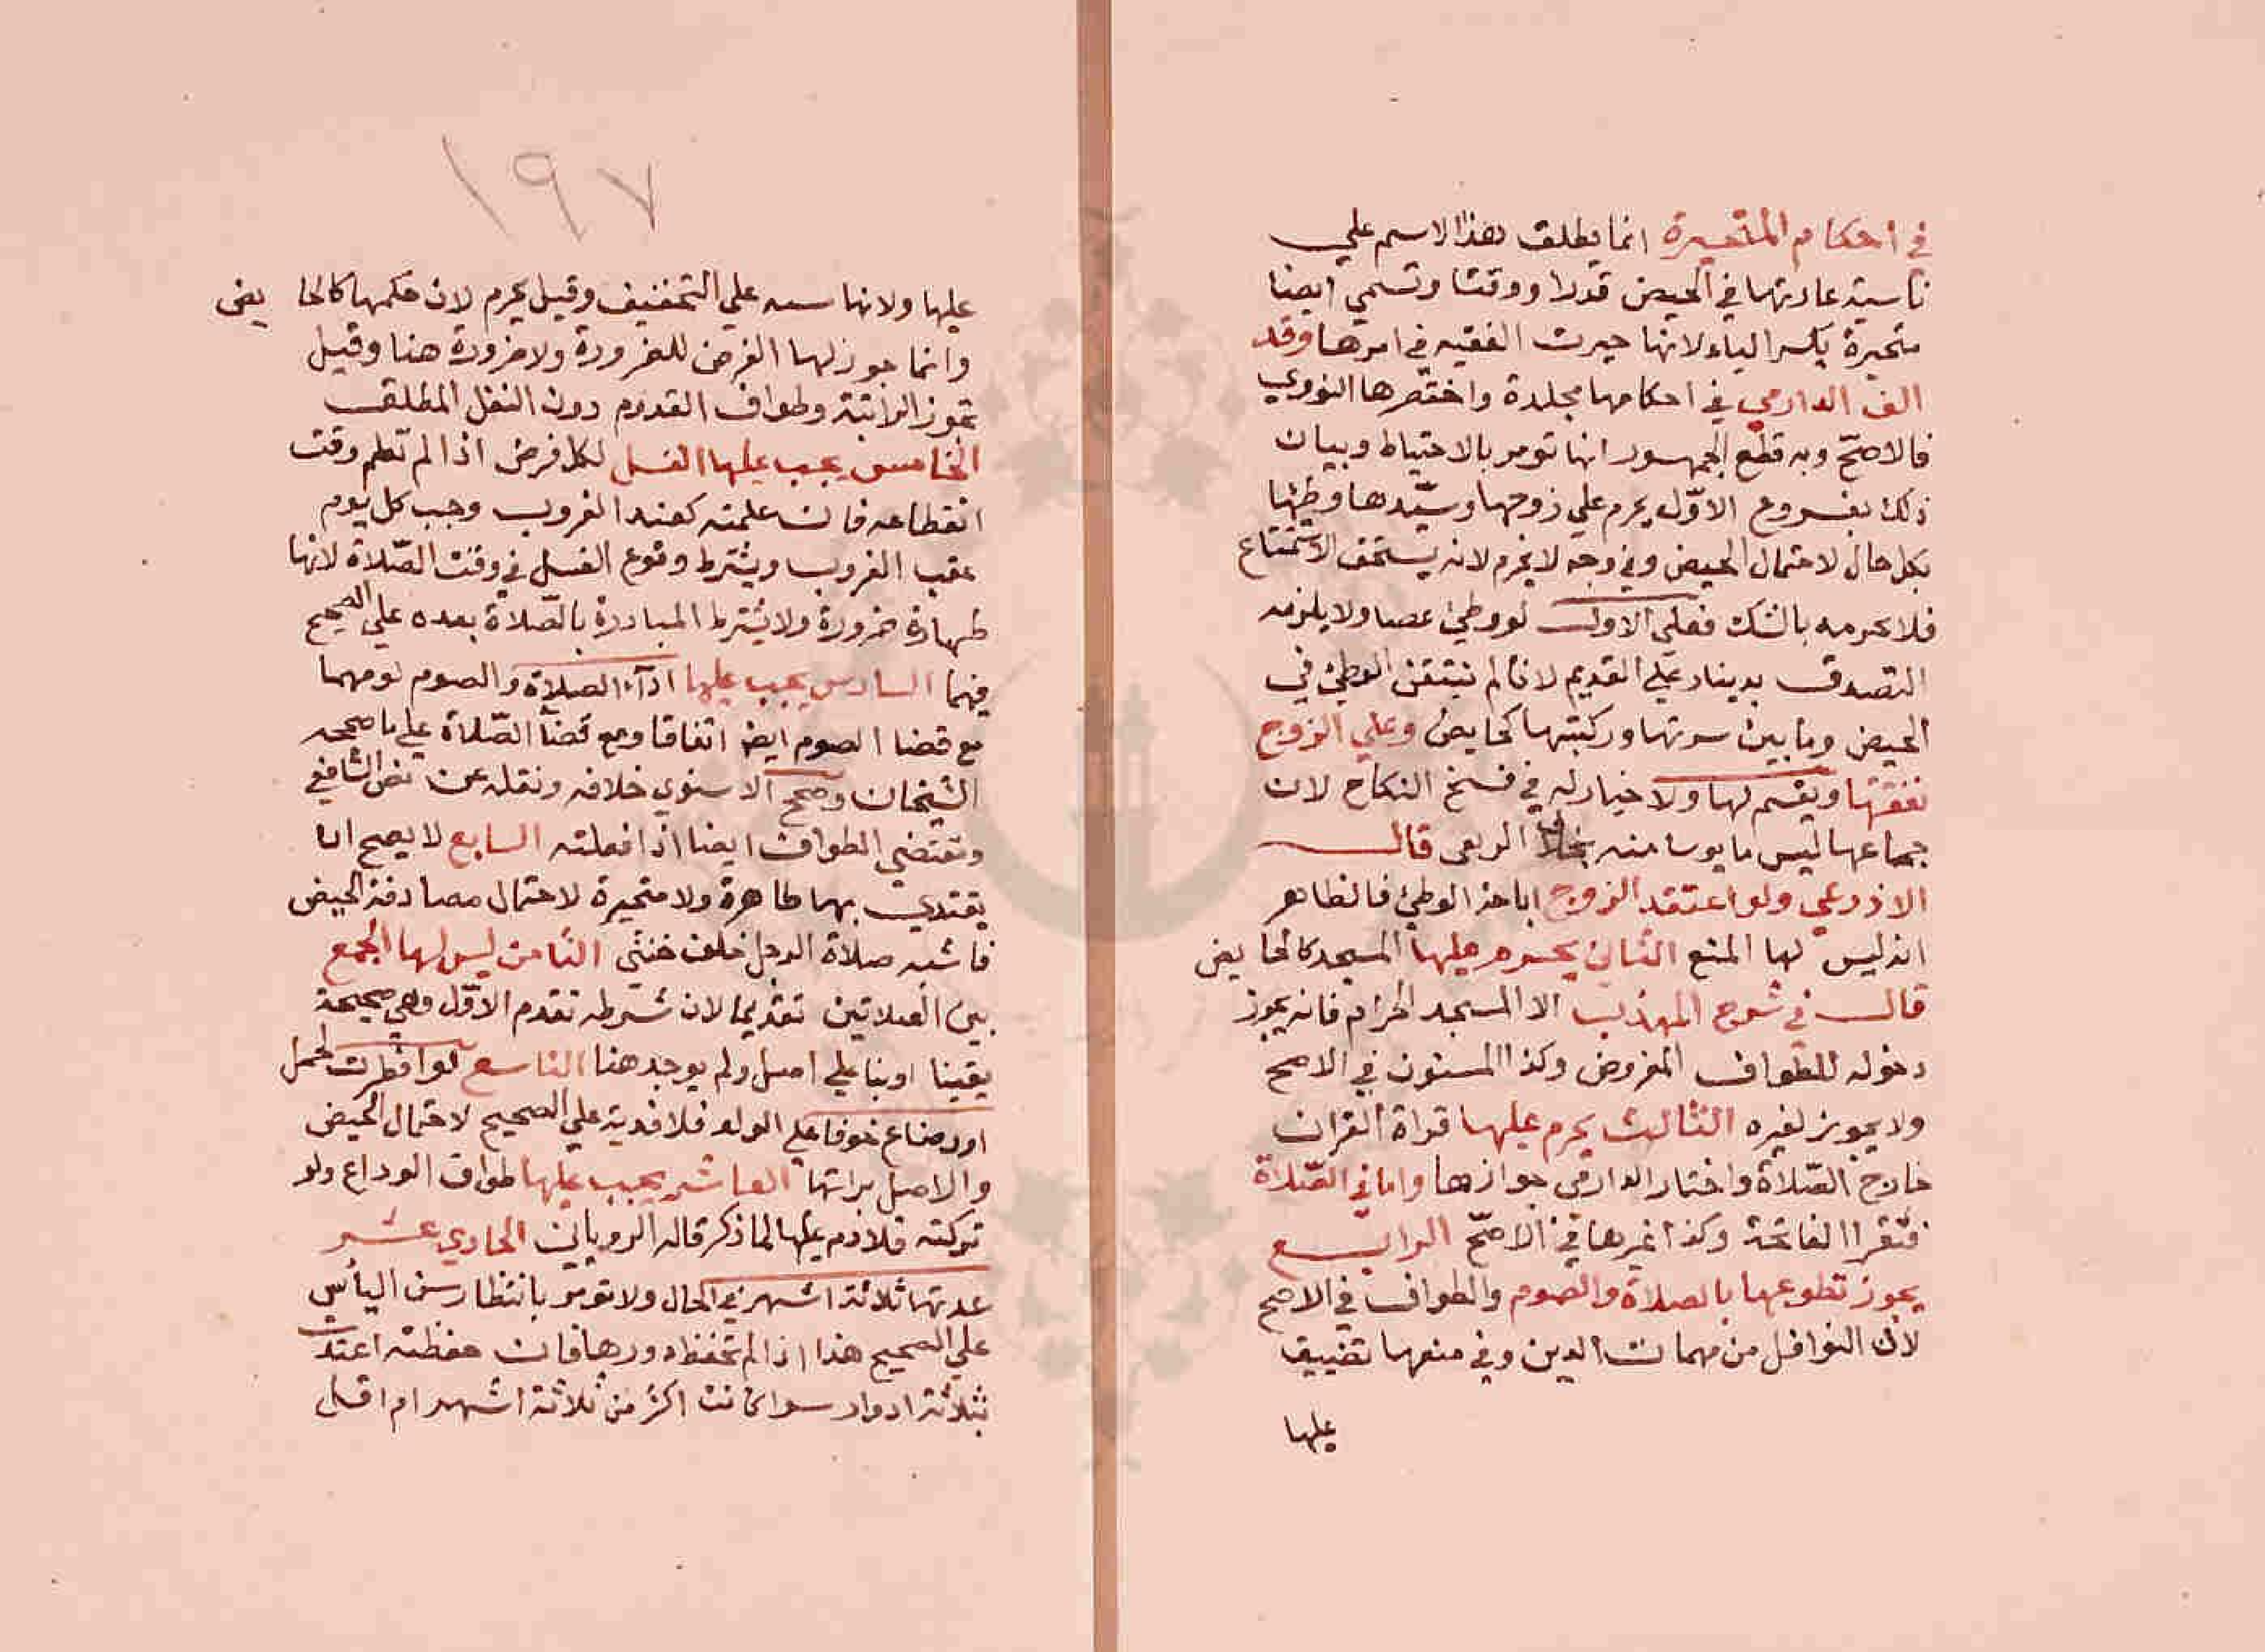 في احكام المتحيرة انما يطلق هذا الاسم علي
ناسية عادتها في الحيض قدرا ووقتا وتسمي ايضا
متحيرة بكسر الياء لانها حيرت الفقيه في امرها وقد
الف الدارمي في احكامها مجلدة واختصرها النووي
فالاصح وبه قطع الجمهور انها تومر بالاحتياط وبيان
ذلك بفروع الاول يحرم علي زوجها وسيدها وطئها
بكل حال لاحتمال الحيض وفي وجه لا يحرم لانه يستحق الاستمتاع
فلا نحرمه بالشك فعلي الاول لو وطي عصا ولا يلزمه
التصدق بدينار علي القديم لانا لم نتيقن الوطئ في
الحيض وما بين سرتها وركبتها كحايض وعلي الزوج
نفقتها ويقسم لها ولا خيار له في فسخ النكاح لان
جماعها ليس مايوسا منه بخلاف الرتقى قال
الاذرعي ولو اعتقد الزوج اباحة الوطئ فالظاهر
انه ليس لها المنع الثاني يحرم عليها المسجد كالحايض
قال في شرح المهذب الا المسجد الحرام فانه يجوز
دخوله للطواف المفروض وكذا المسنون في الاصح
ولا يجوز لغيره الثالث يحرم عليها قراة القران
خارج الصلاة واختار الدارمي جوازها واما في الصلاة
فتقرا الفاتحة وكذا غيرها في الاصح الرابع
يجوز تطوعها بالصلاة والصوم والطواف في الاصح
لان النوافل من مهمات الدين وفي منعها تضييق
عليها
١٩٧
عليها ولانها مبنية علي التخفيف وقيل يحرم لان حكمها كالحايض
وانما جوز لها الفرض للضرورة ولا ضرورة هنا وقيل
تجوز الراتبة وطواف القدوم دون النفل المطلق
الخامس يجب عليها الغسل لكل فرض اذا لم تعلم وقت
انقطاعه فان علمته كعند الغروب وجب كل يوم
عقب الغروب ويشترط وقوع الغسل في وقت الصلاة لانها
طهارة ضرورة ولا يشترط المبادرة بالصلاة بعده علي الصحيح
فيهما السادس يجب عليها اداء الصلاة والصوم لومهما
مع قضا الصوم ايضا اتفاقا ومع قضآ الصلاة علي ما صححه
الشيخان وصحح الاسنوي خلافه ونقله عن نص الشافعي
وتقتضي الطواف ايضا اذا فعلته السابع لا يصح ان
يقتدي بها طاهرة ولا متحيرة لاحتمال مصادفة الحيض
فاشبه صلاة الرجل خلف خنثي الثامن ليس لها الجمع
بين الصلاتين تقديما لان شرطه تقدم الاول وهي صحيحة
يقينا او بنا علي اصل ولم يوجد هنا التاسع لو افطرت لحمل
او رضاع خوفا علي الولد فلا فدية علي الصحيح لاحتمال الحيض
والاصل براتها العاشر يجب عليها طواف الوداع ولو
تركته فلا دم عليها لما ذكر قاله الروياني الحادي عشر
عدتها ثلاثة اشهر في الحال ولا تومر بانتظار سن الياس
علي الصحيح هذا اذا لم تحفظ دورها فان حفظته اعتدت
بثلاثة ادوار سوا كانت اكثر من ثلاثة اشهر ام اقل